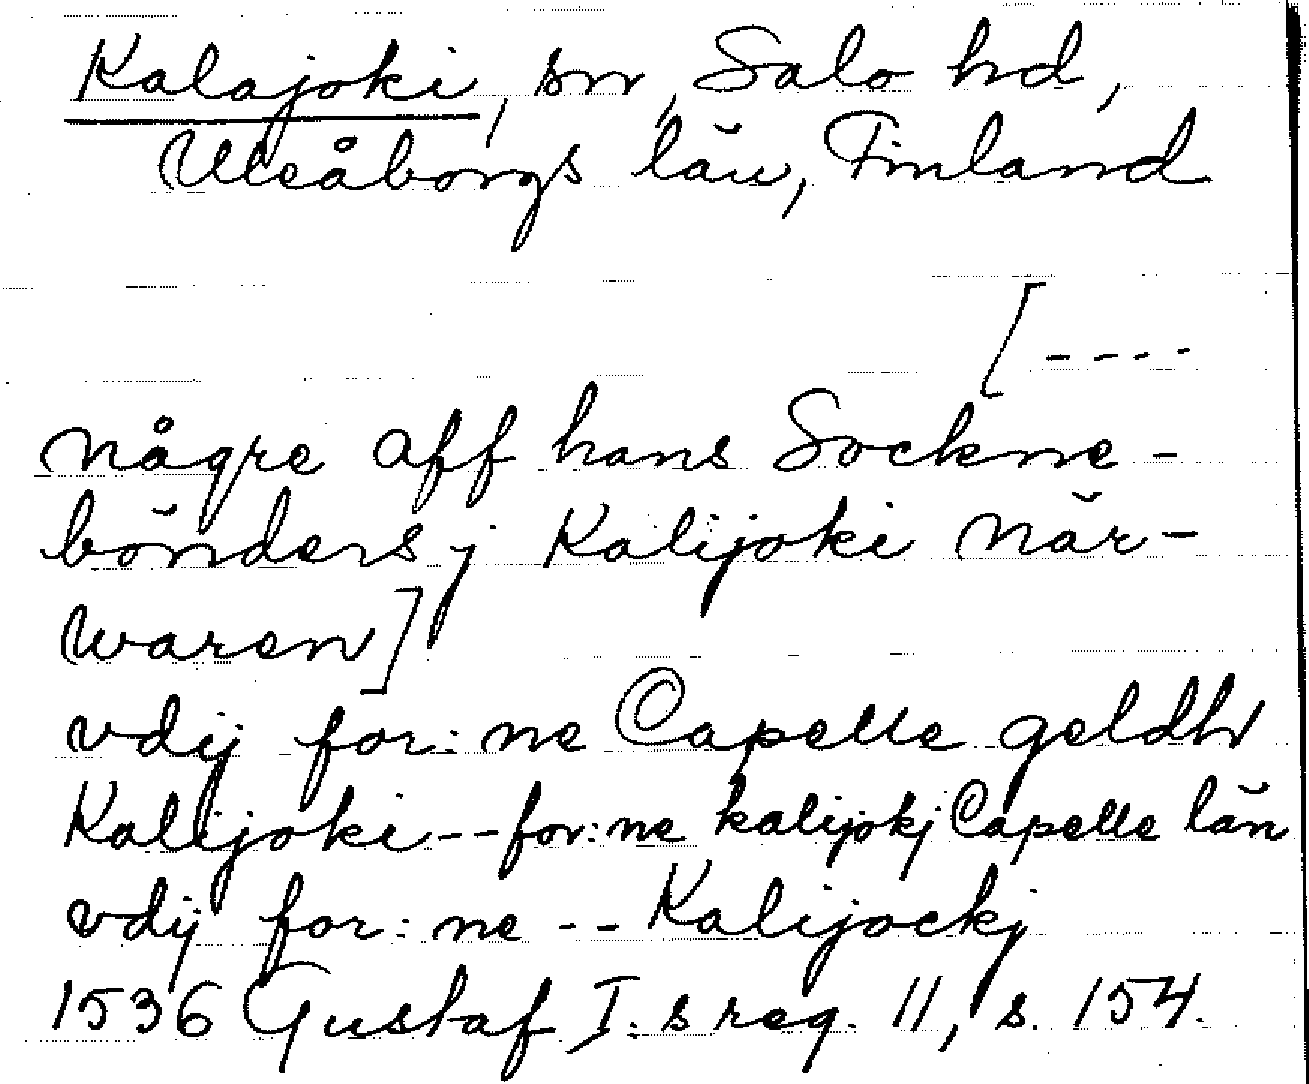 Kalajoki, sn, Salo hd,
Uleåborgs län, Finland
[----
någre aff hans Sockne-
bönders j Kalijoki när-
waren]
vdij for:ne Capelle geldh
Kalijoki--for:ne kalijokj Capelle län
vdij for:ne -- Kalijockj
1536 Gustaf I:s reg. 11, s. 154.